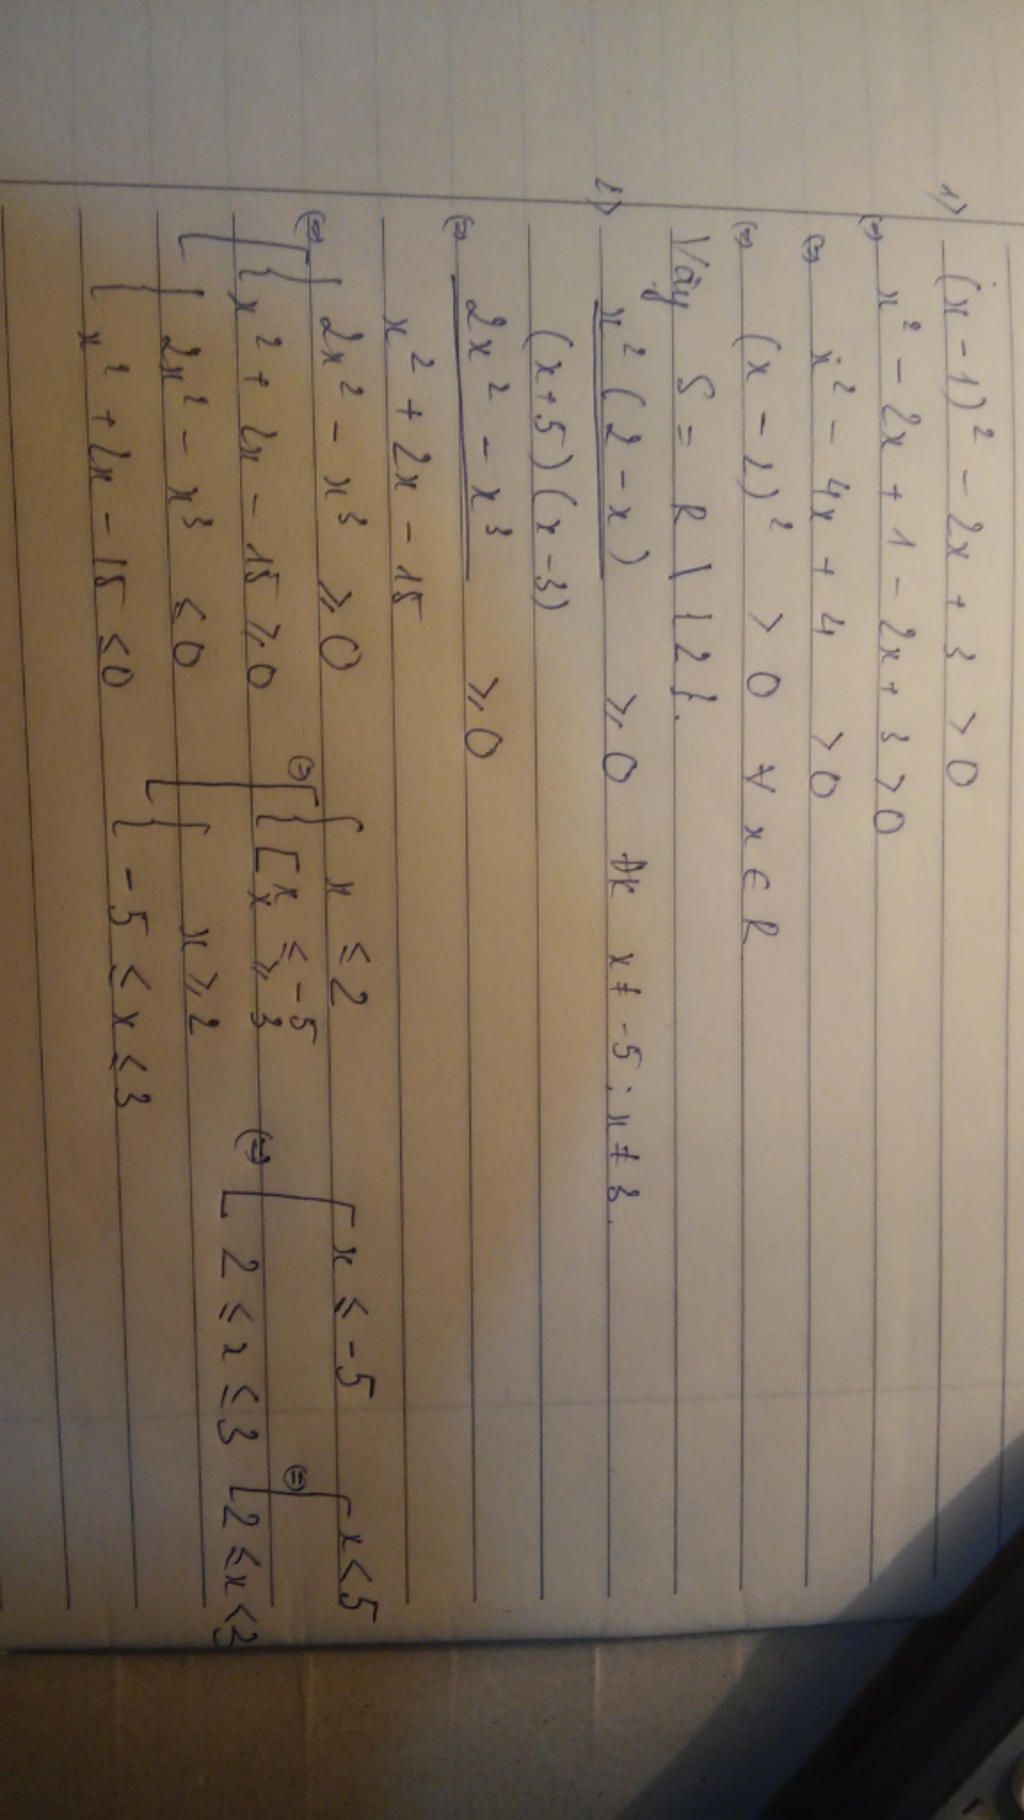 1) (x - 1)² - 2x + 3 > 0
(=) x² - 2x + 1 - 2x + 3 > 0
(=) x² - 4x + 4 > 0
(=) (x - 2)² > 0 ∀ x ∈ R
Vậy S = R \ {2}.
2) x² (2 - x) / (x+5)(x-3) ≥ 0 ĐK x ≠ -5 ; x ≠ 3.
(=) 2x² - x³ / x² + 2x - 15 ≥ 0
(=) [ { 2x² - x³ ≥ 0 (=) [ { x ≤ 2 (=) [ x ≤ -5 (=) [ x < 5
x² + 2x - 15 ≥ 0 [ x ≤ -5 x ≥ 3 2 ≤ x ≤ 3 2 ≤ x < 3
{ 2x² - x³ ≤ 0 { x ≥ 2
x² + 2x - 15 ≤ 0 -5 ≤ x ≤ 3